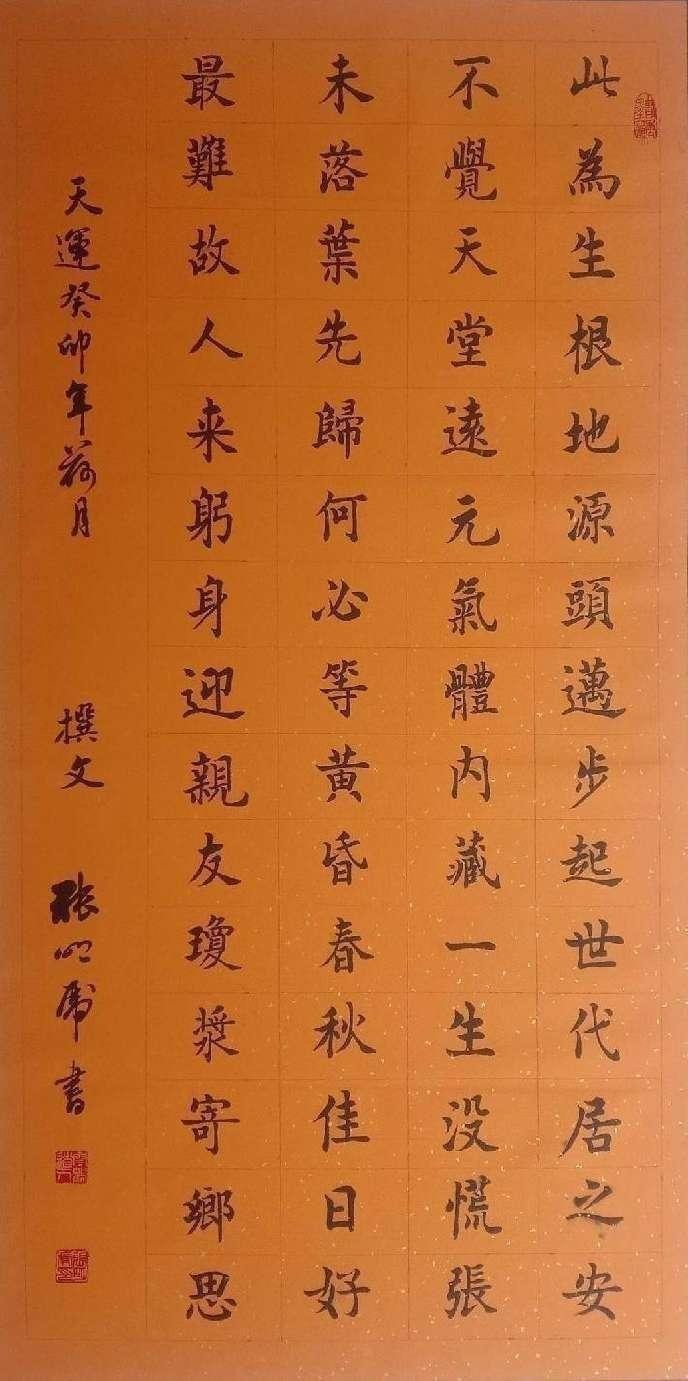 此為生根地源頭邁步起世代居之安
不覺天堂遠元氣體内藏一生没慌張
未落葉先歸何必等黄昏春秋佳日好
最難故人来躬身迎親友瓊漿寄鄉思
天運癸卯年荷月 撰文 張明席書